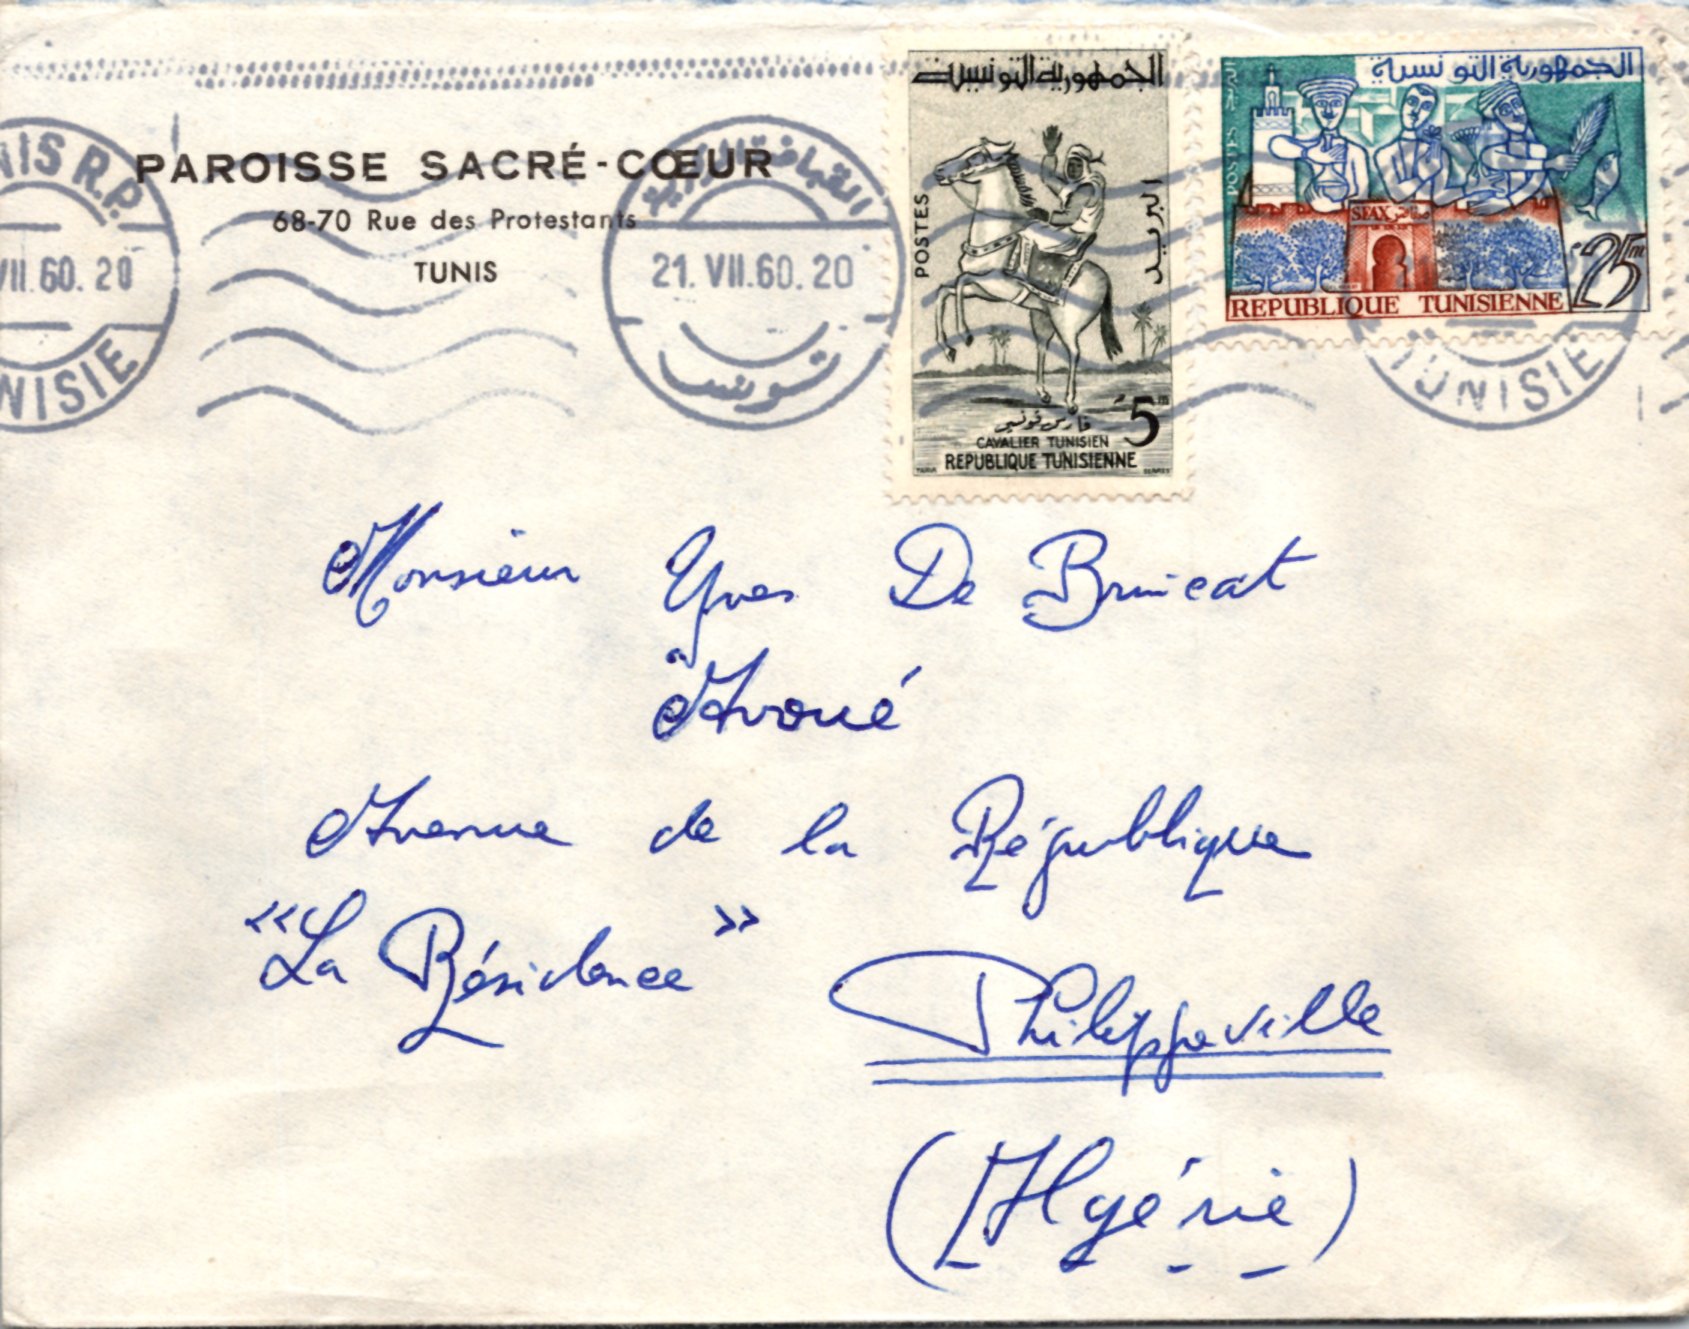 PAROISSE SACRÉ-CŒUR
68-70 Rue des Protestants
TUNIS
NIS R.P.
VII. 60. 20
NISIE
القباضة
21. VII. 60. 20
تونس
الجمهورية التونسية
POSTES
البريد
5m
فارس تونسي
CAVALIER TUNISIEN
REPUBLIQUE TUNISIENNE
الجمهورية التونسية
POSTES
SFAX صفاقس
25m
REPUBLIQUE TUNISIENNE
TUNISIE
Monsieur Yves De Brincat
Avoué
Avenue de la République
"La Résidence"
Philippeville
(Algérie)